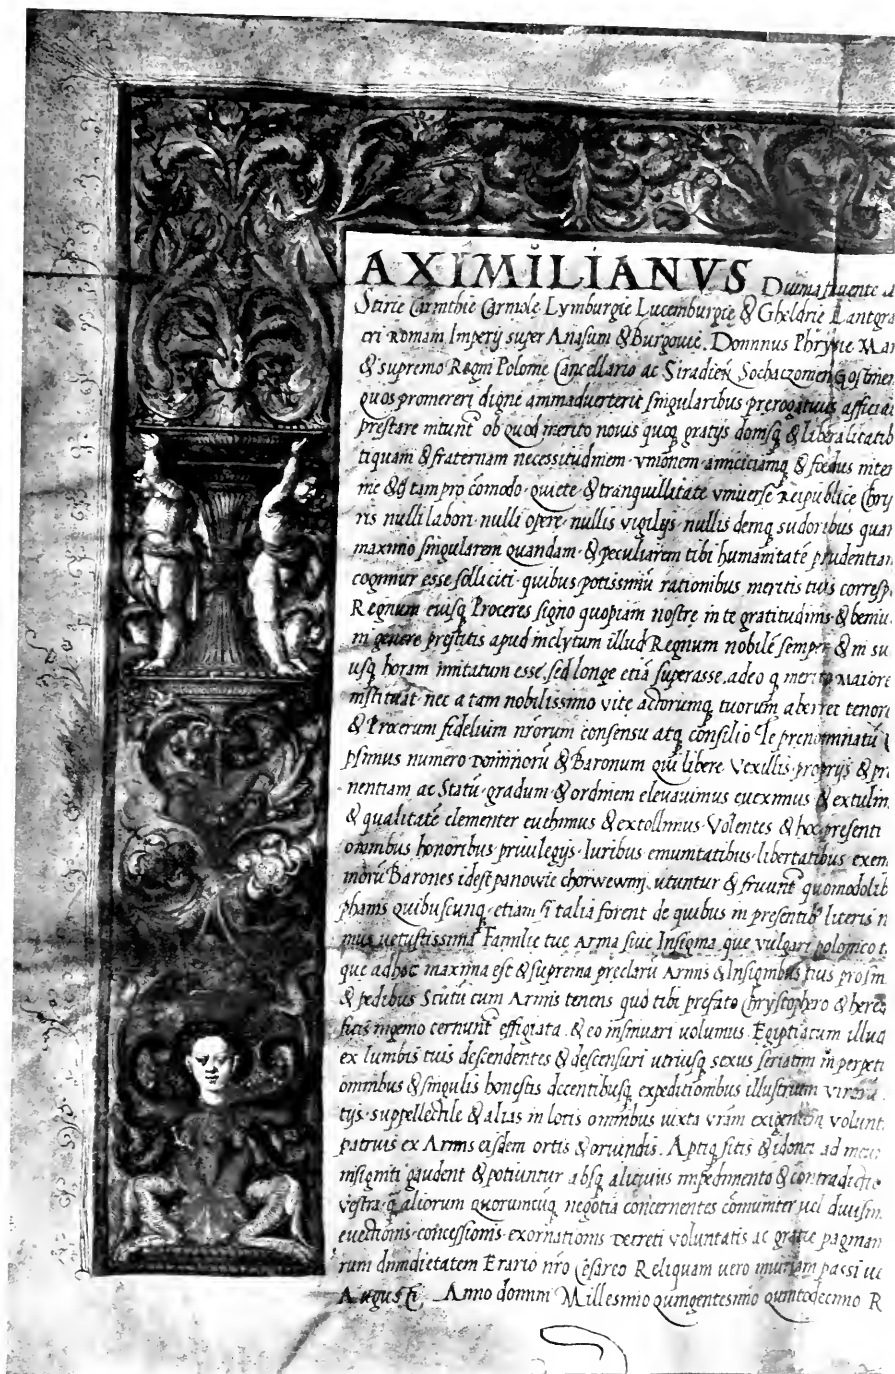 AXIMILIANVS Diuina fauente
Stirie Carinthie Carniole Lymburgie Lucemburgie & Gheldrie Lantgra
cri Romani Imperij super Anasum & Burgouie. Dominus Phrysie Mar
& supremo Regni Polonie Cancellario ac Siradien̄ Sochaczouien Gostinen
quos promereri digne animaduerterit singularibus prerogatiuis afficia
prestare intūnt ob quod merito nouis quoq gratijs donisq & liberalitatib
tiquam & fraternam necessitudinem vnionem amiciciamq & foedus inter
me & tam pro cōmodo quiete & tranquillitate vniuerse Reipublice Chry
ris nulli labori nulli opere nullis vigilijs nullis demq sudoribus quar
maximo singularem quandam & peculiarem tibi humanitatē prudentiam
cogimur esse solliciti quibus potissimū rationibus meritis tuis corresp
Regnum eiusq Proceres signo quopiam nostre in te gratitudinis & beniu
in genere prestitis apud inclytum illud Regnum nobilē semper & in su
usq horam imitatum esse sed longe etiā superasse adeo q merito maiore
instituāt nec a tam nobilissimo vite actorumq tuorum aberret tenore
& Procerum fidelium nrorum consensu atq consilio Te prenominatū
psimus numero Dominorū & Baronum qui libere Vexillis proprijs & pr
nentiam ac Statū gradum & ordinem eleuauimus eueximus & extulim
& qualitatē clementer euehimus & extollimus Volentes & hoc presenti
omnibus honoribus priuilegijs Iuribus emunitatibus libertatibus exem
morū Barones idest panowie chorwewnij utuntur & fruunt quomodolib
phanis quibuscunq etiam si talia forent de quibus in presentib literis n
mus uetustissima Familie tue Arma siue Insignia que vulgari polonico
que adhoc maxima est & suprema preclarū Armis & Insignibus tuis
& pedibus Scutū cum Armis tenens quod tibi prefato Chrystophero & hered
suis ingenio cernunt effigiata & eo insinuari uolumus Egiptiacum illud
ex lumbis tuis descendentes & descensuri utriusq sexus seriatim in perpeti
omnibus & singulis honestis decentibusq expeditionibus illustrium virorū
tijs suppellectile & alias in locis omnibus iuxta vram exigentem volunt
patruis ex Armis eisdem ortis & oriundis Aptiq sitis & idonei ad
insigniti gaudent & potiuntur absq alicuius impedimento & contradictio
vestra q aliorum quorumcūq negotia concernentes cōmuniter uel diuisim
euectionis concessionis exornationis Decreti voluntatis ac gratie paginam
rum dimidietatem Erario nro Cesareo Reliquam uero iniuriam passi
August Anno domini Millesimo quingentesimo quintodecimo R